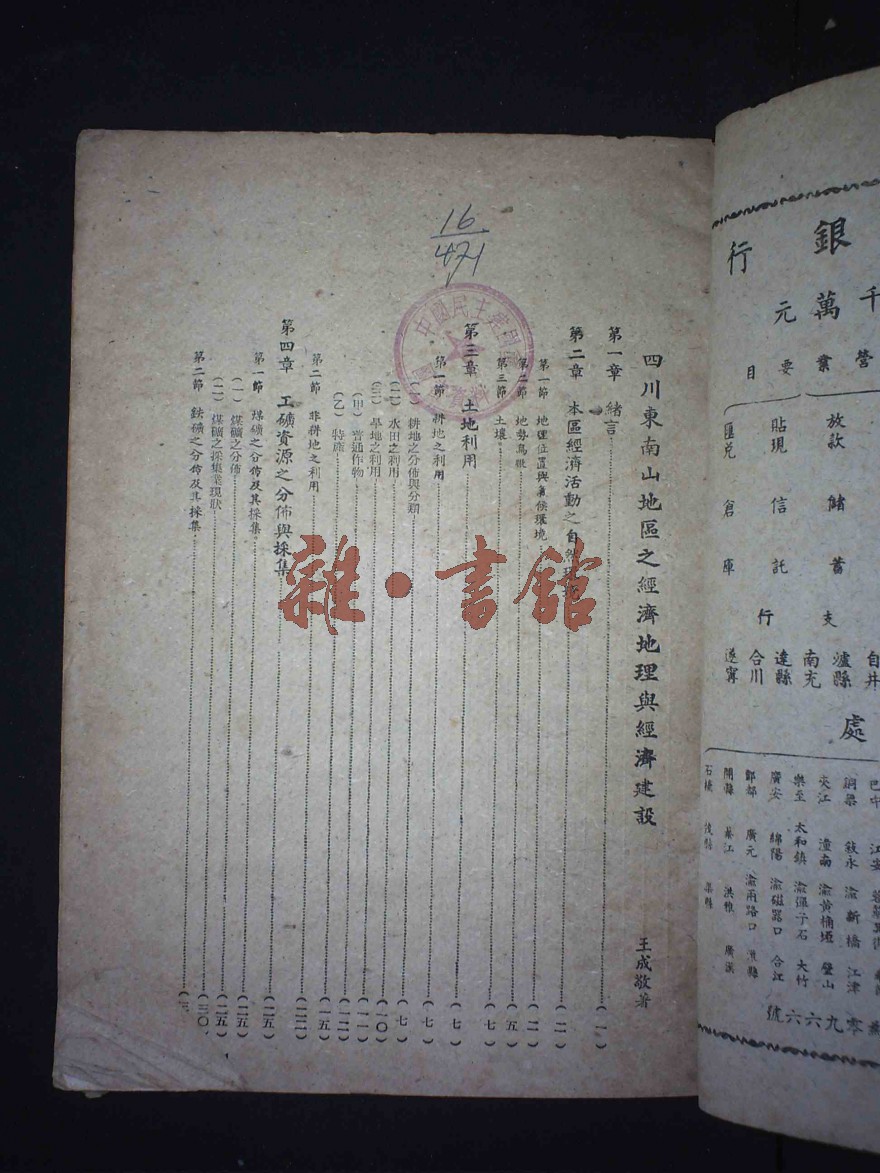 四川東南山地區之經濟地理與經濟建設
王成敬著
第一章 緒言 (一)
第二章 本區經濟活動之自然環境 (二)
第一節 地理位置與氣候環境 (二)
第二節 地勢鳥瞰 (五)
第三節 土壤 (七)
第三章 土地利用 (七)
第一節 耕地之利用 (七)
(一) 耕地之分佈與分類 (七)
(二) 水田之利用 (一〇)
(三) 旱地之利用 (一一)
(甲) 普通作物 (一二)
(乙) 特產 (一五)
第二節 非耕地之利用 (二二)
第四章 工礦資源之分佈與採集 (二五)
第一節 煤礦之分佈及其採集 (二五)
(一) 煤礦之分佈 (二五)
(二) 煤礦之採集業現狀 (三〇)
第二節 鉄礦之分佈及其採集
16
471
中國民主建國
雜·書館
銀
行
千
萬
元
營
業
要
目
放款 儲蓄
貼現 信託
匯兌 倉庫
支
行
自井
瀘縣
南充
達縣
合川
遂寧
處
巴中 江安
銅梁 敘永 渝新橋 江津
夾江 潼南 渝黃桷埡 璧山
樂至 太和鎮 渝彈子石 大竹
廣安 綿陽 渝磁器口 合江
酆都 廣元 渝兩路口
開縣 綦江 洪雅 廣漢
零九六六號